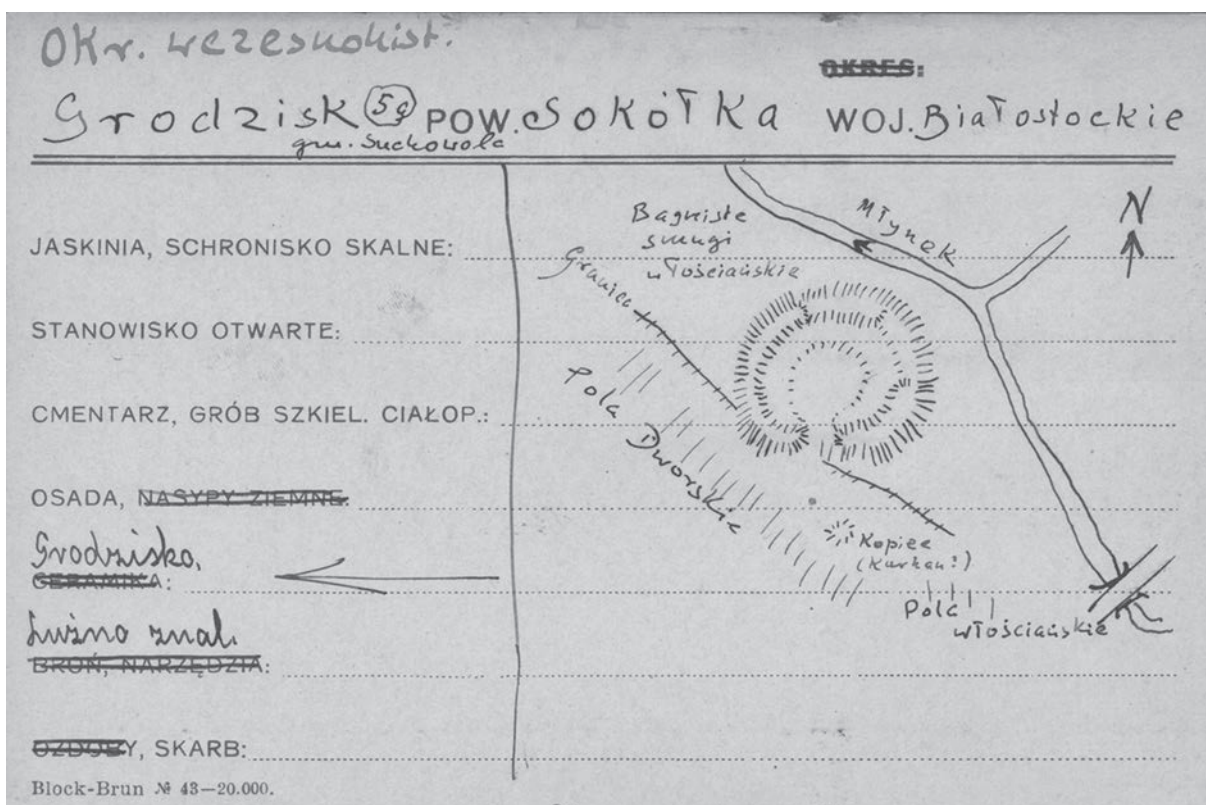 Okr. wczesnohist.
OKRES:
Grodzisk 59 POW. Sokółka WOJ. Białostockie
gm. Suchowola
JASKINIA, SCHRONISKO SKALNE:
STANOWISKO OTWARTE:
CMENTARZ, GRÓB SZKIEL. CIAŁOP.:
OSADA, NASYPY ZIEMNE:
Grodzisko.
CERAMIKA:
Luźno znal.
BROŃ, NARZĘDZIA:
OZDOBY, SKARB:
Block-Brun № 43—20.000.
Bagniste
smugi
włościańskie
Młynek
N
Granica
Pola Dworskie
Kopiec
(Kurhan?)
Pola
włościańskie